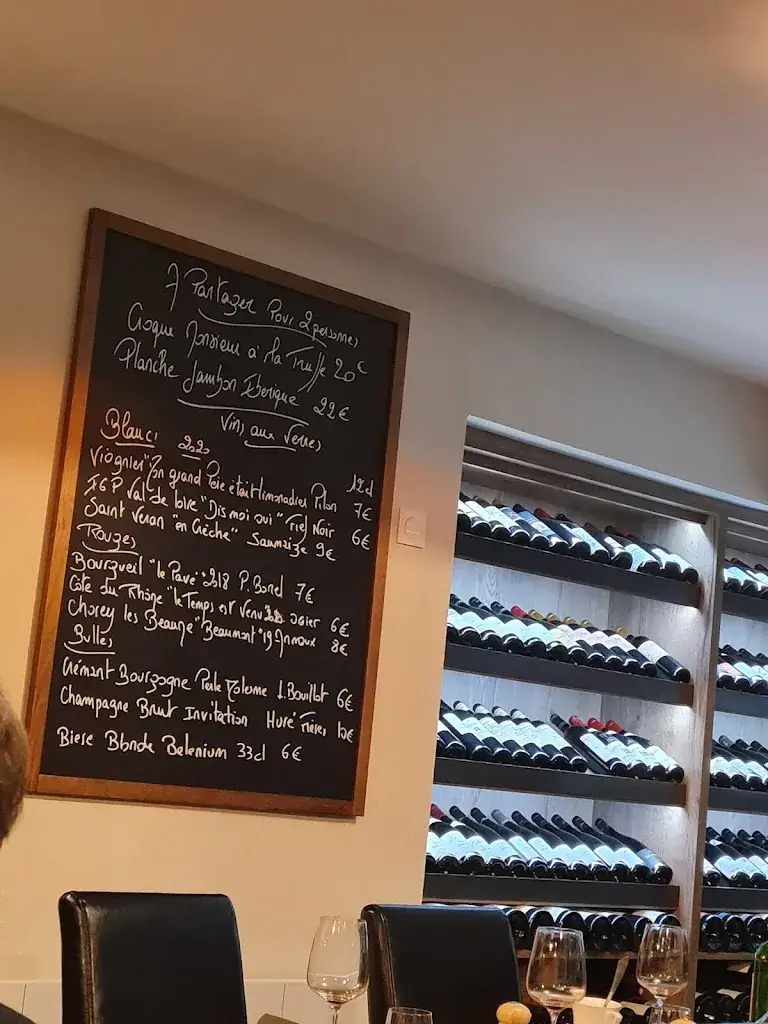 A Partager Pour 2 personnes
Croque Monsieur à la Truffe 20€
Planche Jambon Iberique 22€
Vins aux Verres
Blancs 2020 12cl
Viognier "Mon grand Père était limonadier" Pilon 7€
IGP Val de loire "Dis moi oui" Noir 6€
Saint Veran "en Crèche" Saumaize 9€
Rouges
Bourgueil "le Pavé" 2018 P. Borel 7€
Côte du Rhône "le Temps est Venu" ogier 6€
Chorey les Beaune "Beaumont" 19 8€
Bulles
Crémant Bourgogne Perle L. Bouillot 6€
Champagne Brut Invitation Huré Frères 12€
Biere Blonde Belenium 33cl 6€